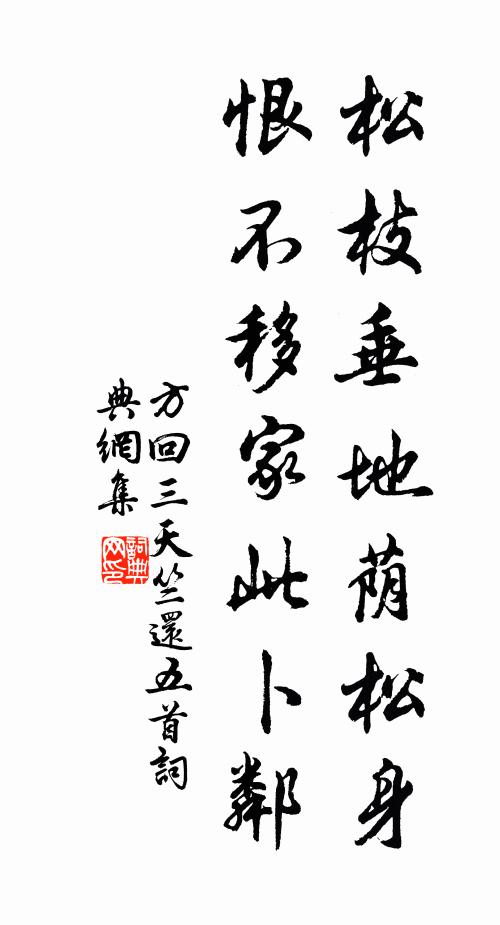 松枝垂地荫松身
恨不移家此卜鄰
方回三天竺還五首詞
典網集
詞典網印